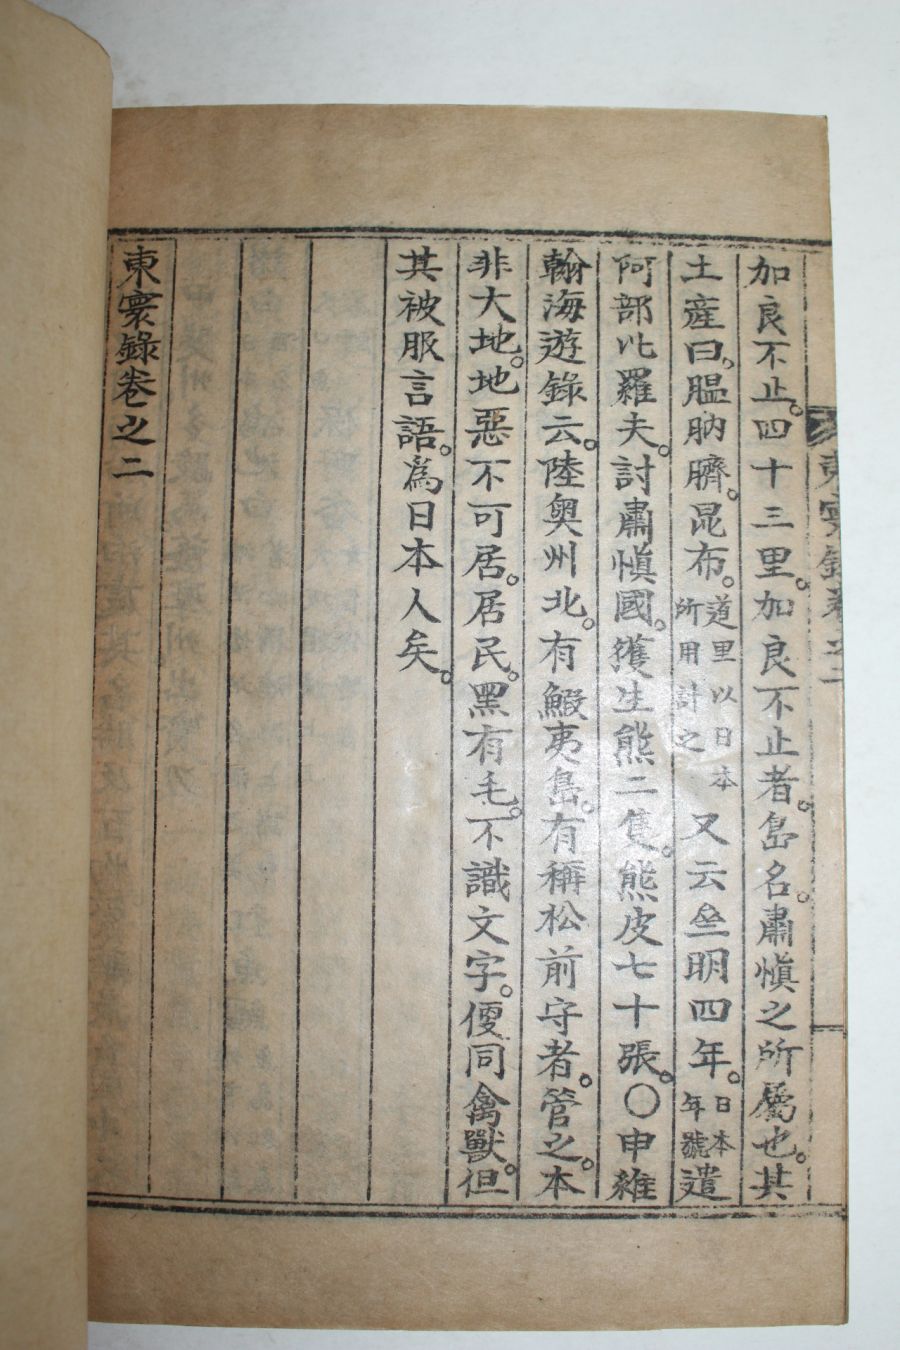 加良不止。四十三里。加良不止者。島名。肅愼之所屬也。其
土產曰。膃肭臍。昆布。道里以日本所用計之又云坐明四年。日本年號遣
阿部比羅夫。討肅愼國。獲生熊二隻。熊皮七十張。〇申維
翰海遊錄云。陸奧州北。有鰕夷島。有稱松前守者。管之。本
非大地。地惡不可居。居民。黑有毛。不識文字。便同禽獸。但
其被服言語。爲日本人矣。
東寰錄卷之二